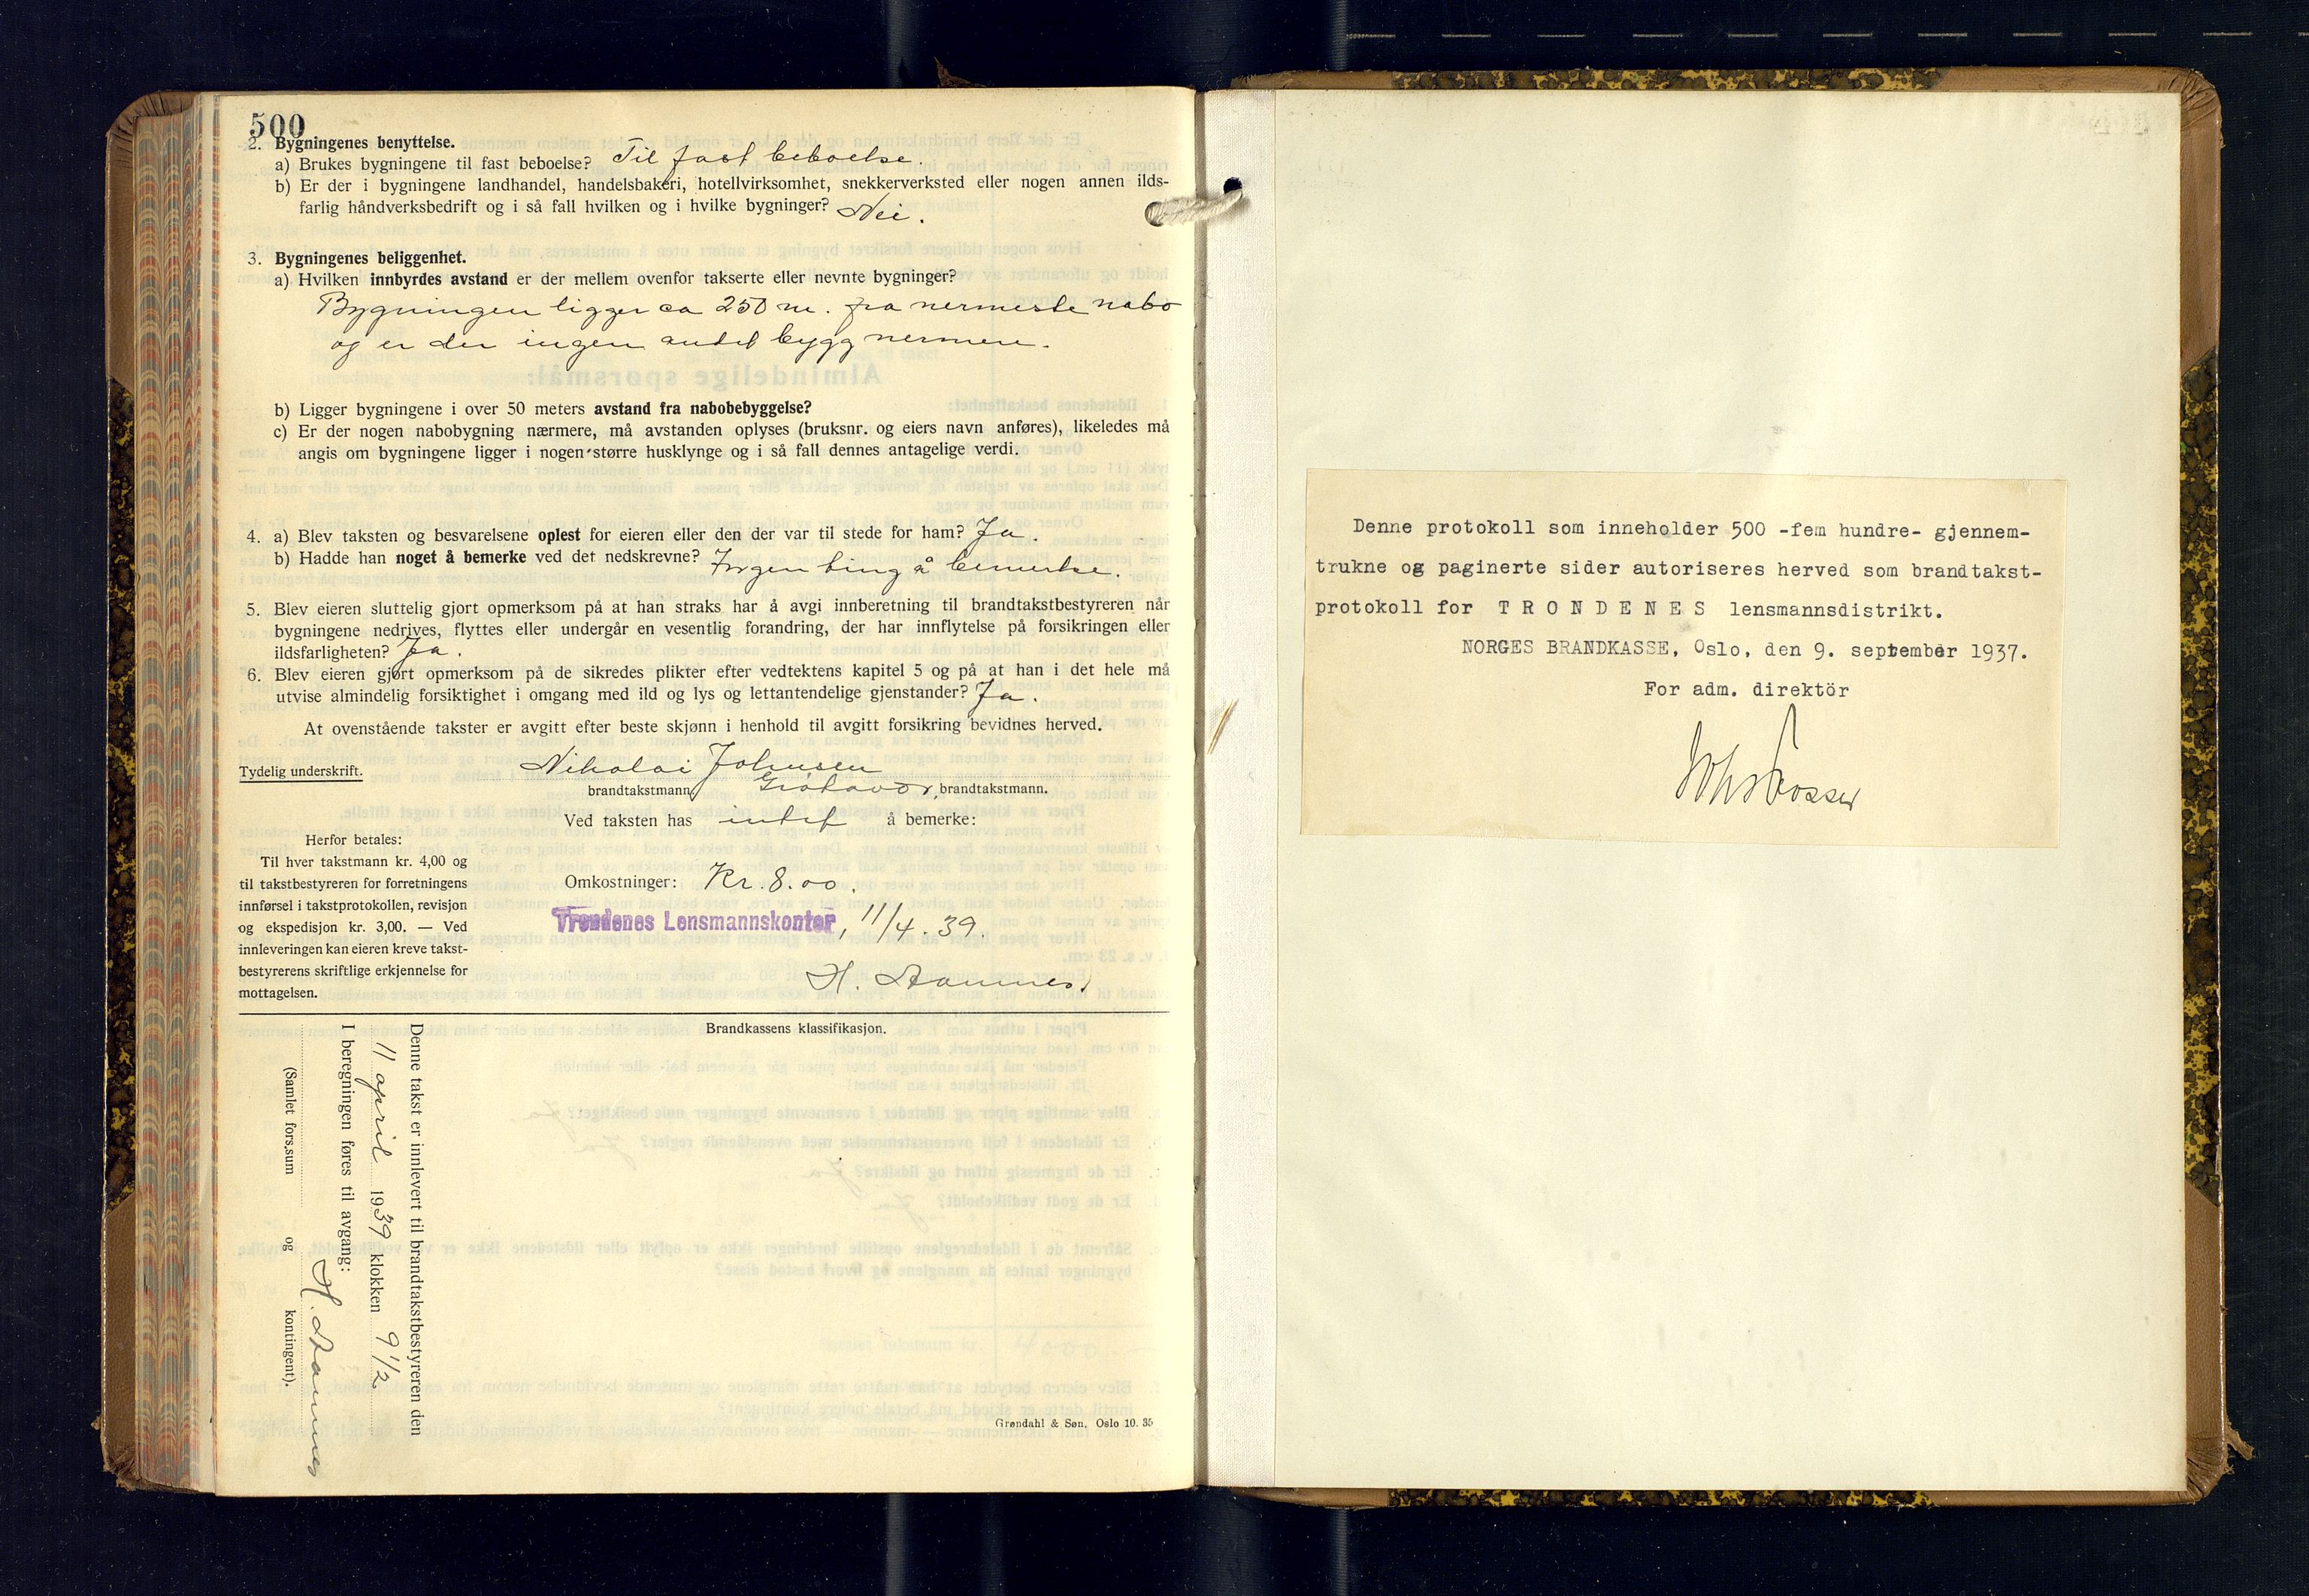 500
2. Bygningenes benyttelse.
a) Brukes bygningene til fast beboelse? Til fast beboelse.
b) Er der i bygningene landhandel, handelsbakeri, hotellvirksomhet, snekkerverksted eller nogen annen ilds-
farlig håndverksbedrift og i så fall hvilken og i hvilke bygninger? Nei.
3. Bygningenes beliggenhet.
a) Hvilken innbyrdes avstand er der mellem ovenfor takserte eller nevnte bygninger?
Bygningen ligger ca 250 m. fra nermeste nabo
og er der ingen andet bygg nermere.
b) Ligger bygningene i over 50 meters avstand fra nabobebyggelse?
c) Er der nogen nabobygning nærmere, må avstanden oplyses (bruksnr. og eiers navn anføres), likeledes må
angis om bygningene ligger i nogen større husklynge og i så fall dennes antagelige verdi.
4. a) Blev taksten og besvarelsene oplest for eieren eller den der var til stede for ham? Ja.
b) Hadde han noget å bemerke ved det nedskrevne? Ingen ting å bemerke.
5. Blev eieren sluttelig gjort opmerksom på at han straks har å avgi innberetning til brandtakstbestyreren når
bygningene nedrives, flyttes eller undergår en vesentlig forandring, der har innflytelse på forsikringen eller
ildsfarligheten? Ja.
6. Blev eieren gjort opmerksom på de sikredes plikter efter vedtektens kapitel 5 og på at han i det hele må
utvise almindelig forsiktighet i omgang med ild og lys og lettantendelige gjenstander? Ja.
At ovenstående takster er avgitt efter beste skjønn i henhold til avgitt forsikring bevidnes herved.
Tydelig underskrift. Nikolai Johnsen
brandtakstmann, Grötavær, brandtakstmann.
Ved taksten has intet å bemerke:
Herfor betales:
Til hver takstmann kr. 4,00 og
til takstbestyreren for forretningens
innførsel i takstprotokollen, revisjon
og ekspedisjon kr. 3,00. — Ved
innleveringen kan eieren kreve takst-
bestyrerens skriftlige erkjennelse for
mottagelsen.
Omkostninger: Kr. 8.00.
Trondenes Lensmannskontor, 11/4. 39.
H. Aamnes.
Brandkassens klassifikasjon.
Denne takst er innlevert til brandtakstbestyreren den
11 april 1939 klokken 9 1/2
I beregningen føres til avgang:
H. Aamnes
(Samlet fors.sum og kontingent).
Grøndahl & Søn, Oslo 10. 35
Denne protokoll som inneholder 500 -fem hundre- gjennem-
trukne og paginerte sider autoriseres herved som brandtakst-
protokoll for T R O N D E N E S lensmannsdistrikt.
NORGES BRANDKASSE, Oslo, den 9. september 1937.
For adm. direktör